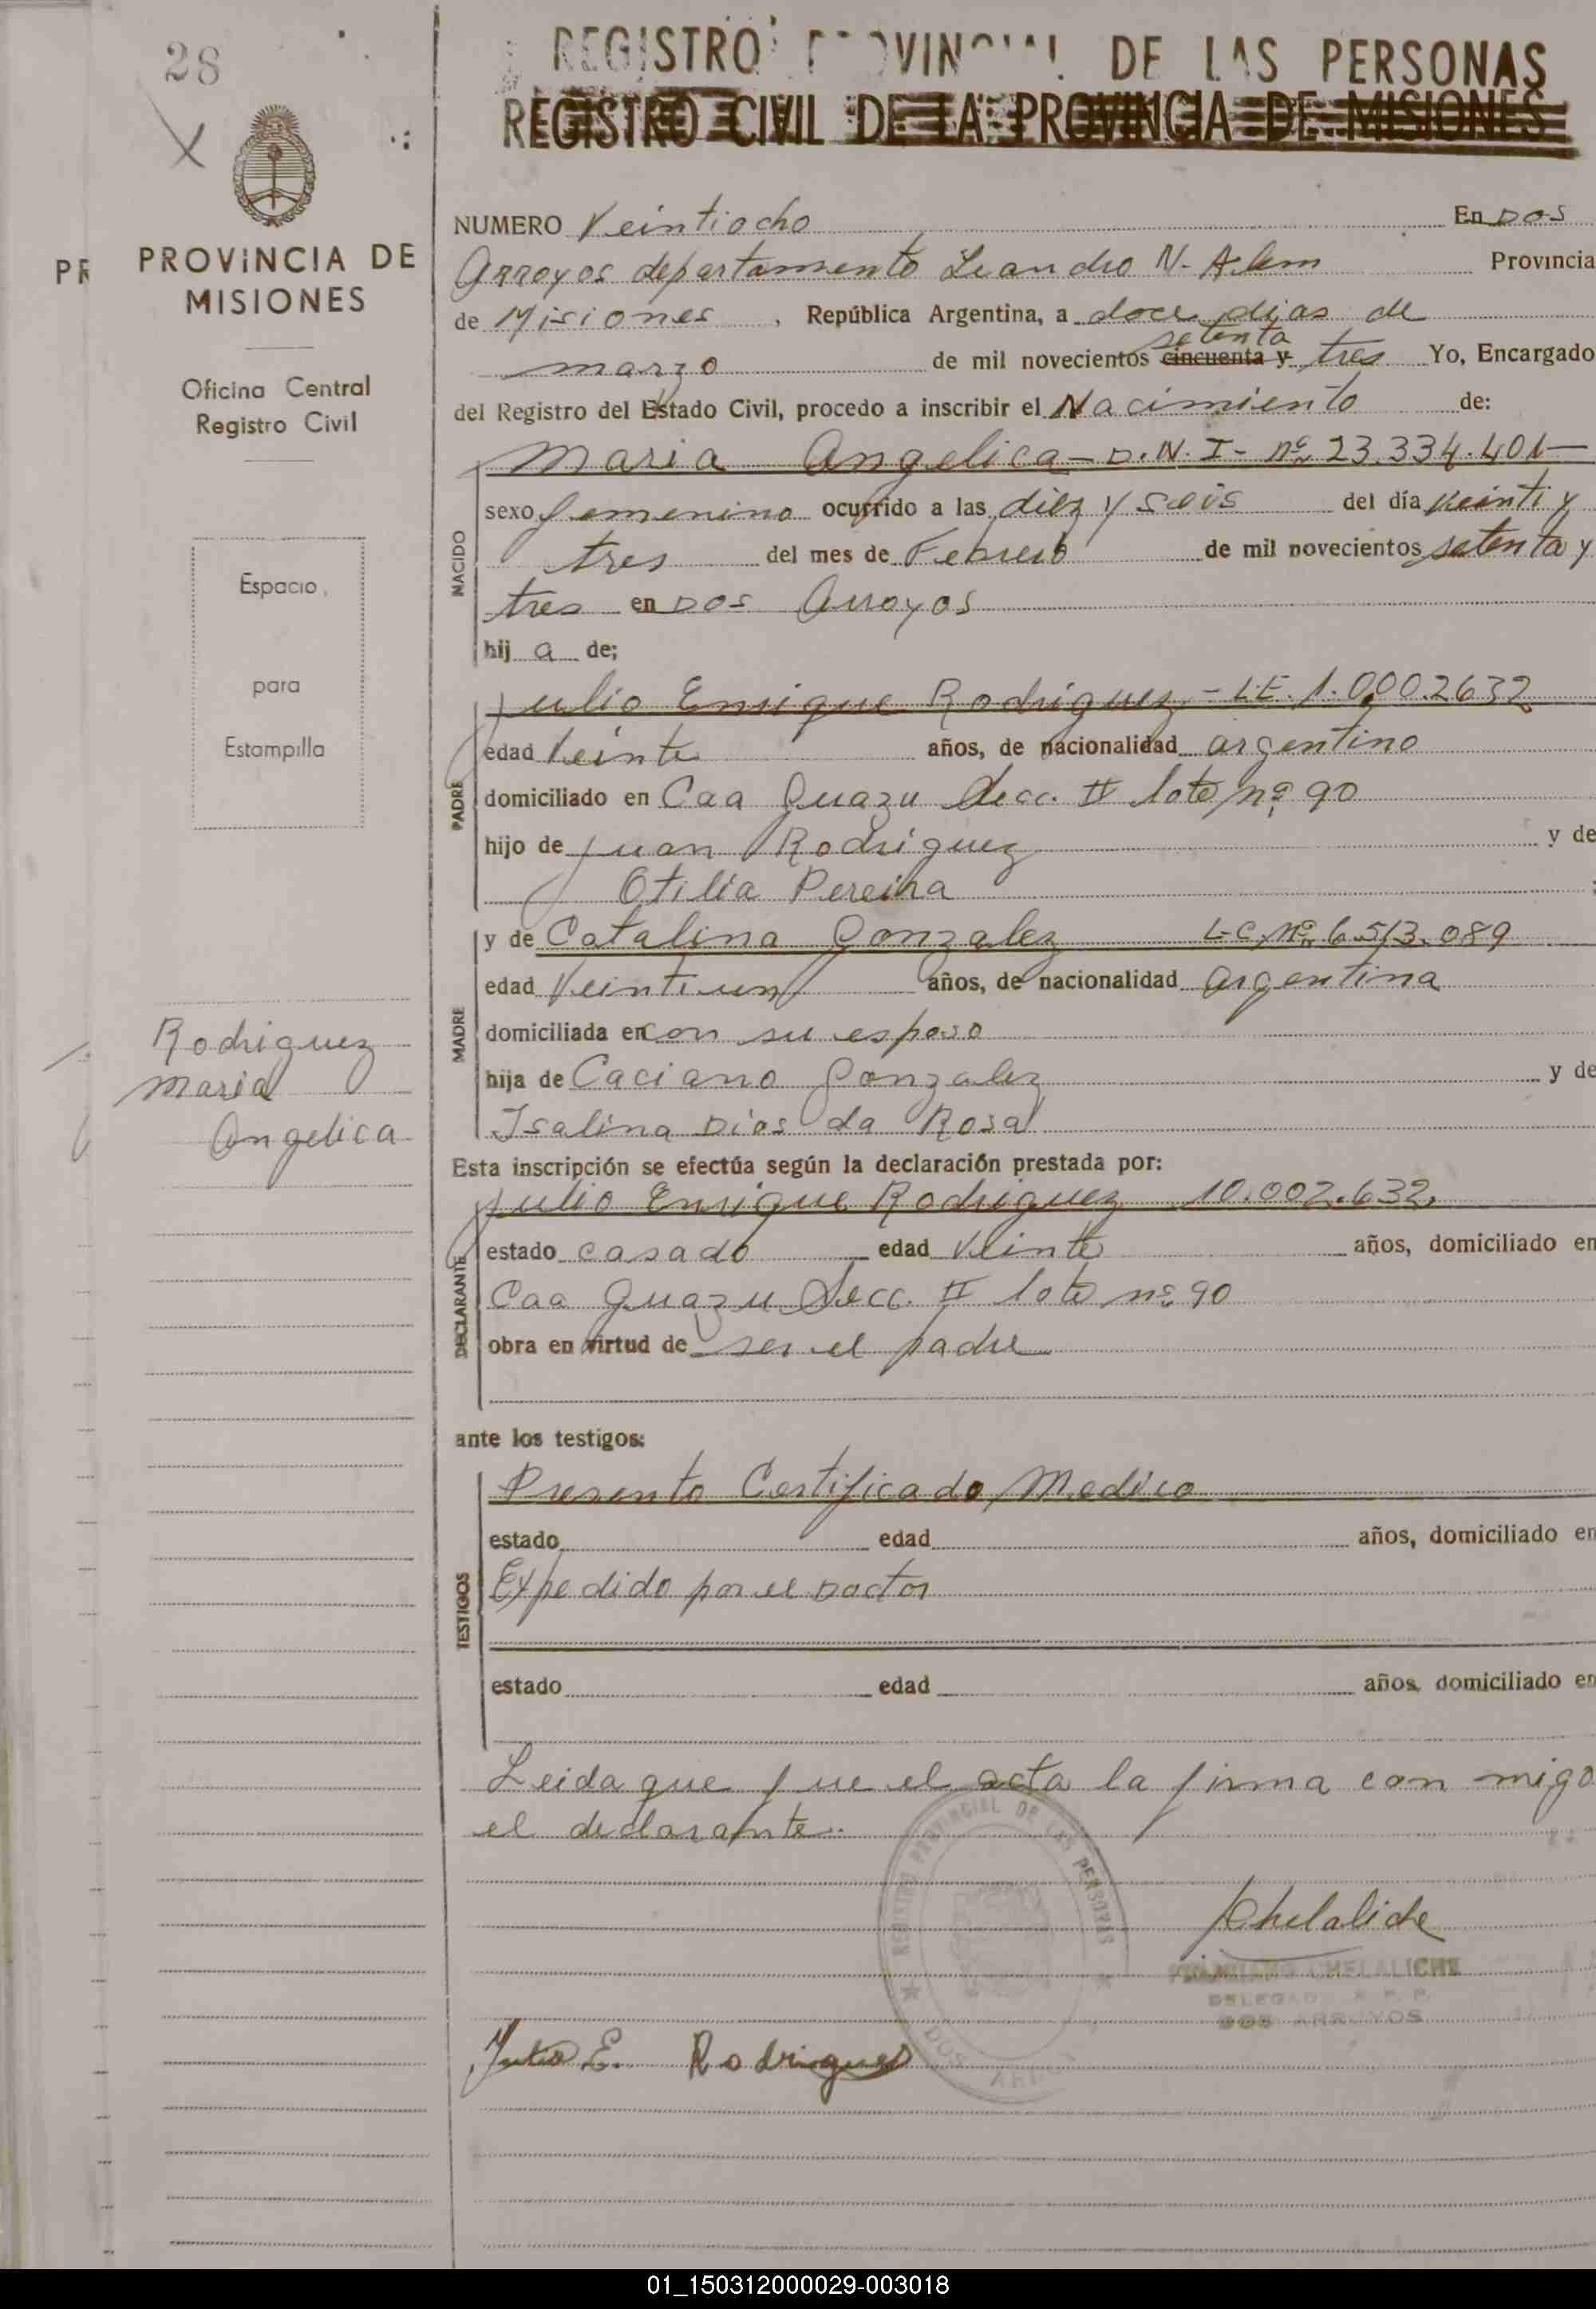 28
PROVINCIA DE
MISIONES
Oficina Central
Registro Civil
Espacio
para
Estampilla
Rodriguez
Maria
Angelica
REGISTRO PROVINCIAL DE LAS PERSONAS
REGISTRO CIVIL DE LA PROVINCIA DE MISIONES
NUMERO Veintiocho En Dos
Arroyos departamento Leandro N. Alem Provincia
de Misiones, República Argentina, a doce dias de
setenta
marzo de mil novecientos cincuenta y tres Yo, Encargado
del Registro del Estado Civil, procedo a inscribir el Nacimiento de:
Maria Angelica - D.N.I - nº 23.334.401-
NACIDO
sexo femenino ocurrido a las diez y seis del día veinti y
tres del mes de Febrero de mil novecientos setenta y
tres en Dos Arroyos
hij a de;
PADRE
Julio Enrique Rodriguez - L.E. 1.0002632
edad Veinte años, de nacionalidad argentino
domiciliado en Caa Guazu Secc. II lote nº 90
hijo de Juan Rodriguez y de
Otilia Pereira ;
MADRE
y de Catalina Gonzalez L.C. Nº 6.513.089
edad Veintiun años, de nacionalidad argentina
domiciliada en con su esposo
hija de Caciano Gonzalez y de
Isalina Dias da Rosa
Esta inscripción se efectúa según la declaración prestada por:
DECLARANTE
Julio Enrique Rodriguez 10.002.632,
estado casado edad Veinte años, domiciliado en
Caa Guazu Secc. II lote nº 90
obra en virtud de ser el padre
ante los testigos:
TESTIGOS
Presento Certificado Medico
estado edad años, domiciliado en
Expedido por el Doctor
estado edad años, domiciliado en
Leida que fue el acta la firma con migo
el declarante.
REGISTRO PROVINCIAL DE LAS PERSONAS
DOS ARROYOS
Chelaliche
CHELALICHE
DELEGADO R. P. P.
DOS ARROYOS
Julio E. Rodriguez
01_150312000029-003018